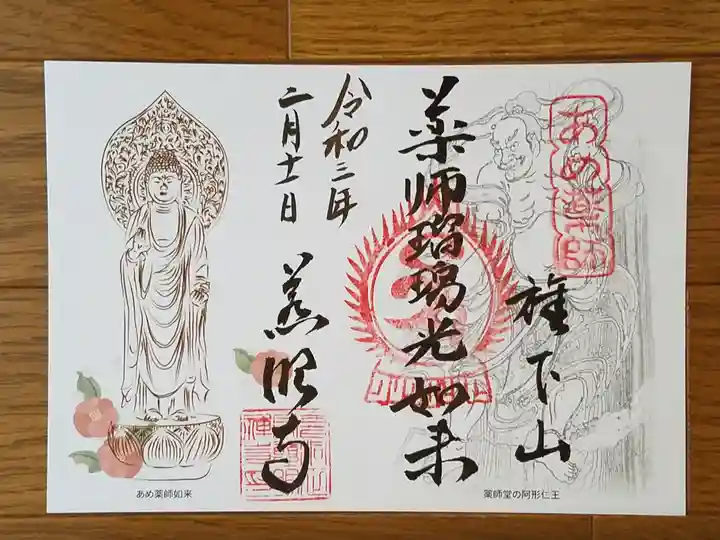 あめ薬師
下山
薬師瑠璃光如来
令和三年
二月十一日
慈眼寺
薬師堂の阿形仁王
あめ薬師如来